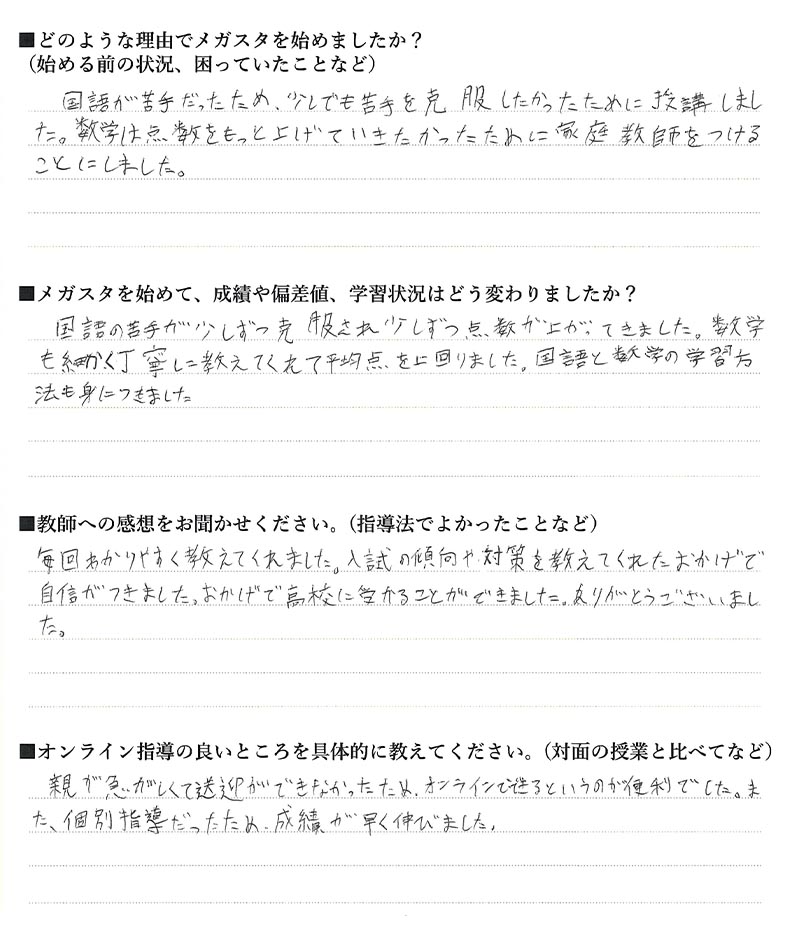 ■どのような理由でメガスタを始めましたか？
（始める前の状況、困っていたことなど）
国語が苦手だったため、少しでも苦手を克服したかったために受講しまし
た。数学は点数をもっと上げていきたかったために家庭教師をつける
ことにしました。
■メガスタを始めて、成績や偏差値、学習状況はどう変わりましたか？
国語の苦手が少しずつ克服され少しずつ点数が上がってきました。数学
も細かく丁寧に教えてくれて平均点を上回りました。国語と数学の学習方
法も身につきました
■教師への感想をお聞かせください。（指導法でよかったことなど）
毎回わかりやすく教えてくれました。入試の傾向や対策を教えてくれたおかげで
自信がつきました。おかげで高校に受かることができました。ありがとうございまし
た。
■オンライン指導の良いところを具体的に教えてください。（対面の授業と比べてなど）
親が急がしくて送迎ができなかったため、オンラインで るというのが便利でした。ま
た、個別指導だったため、成績が早く伸びました。